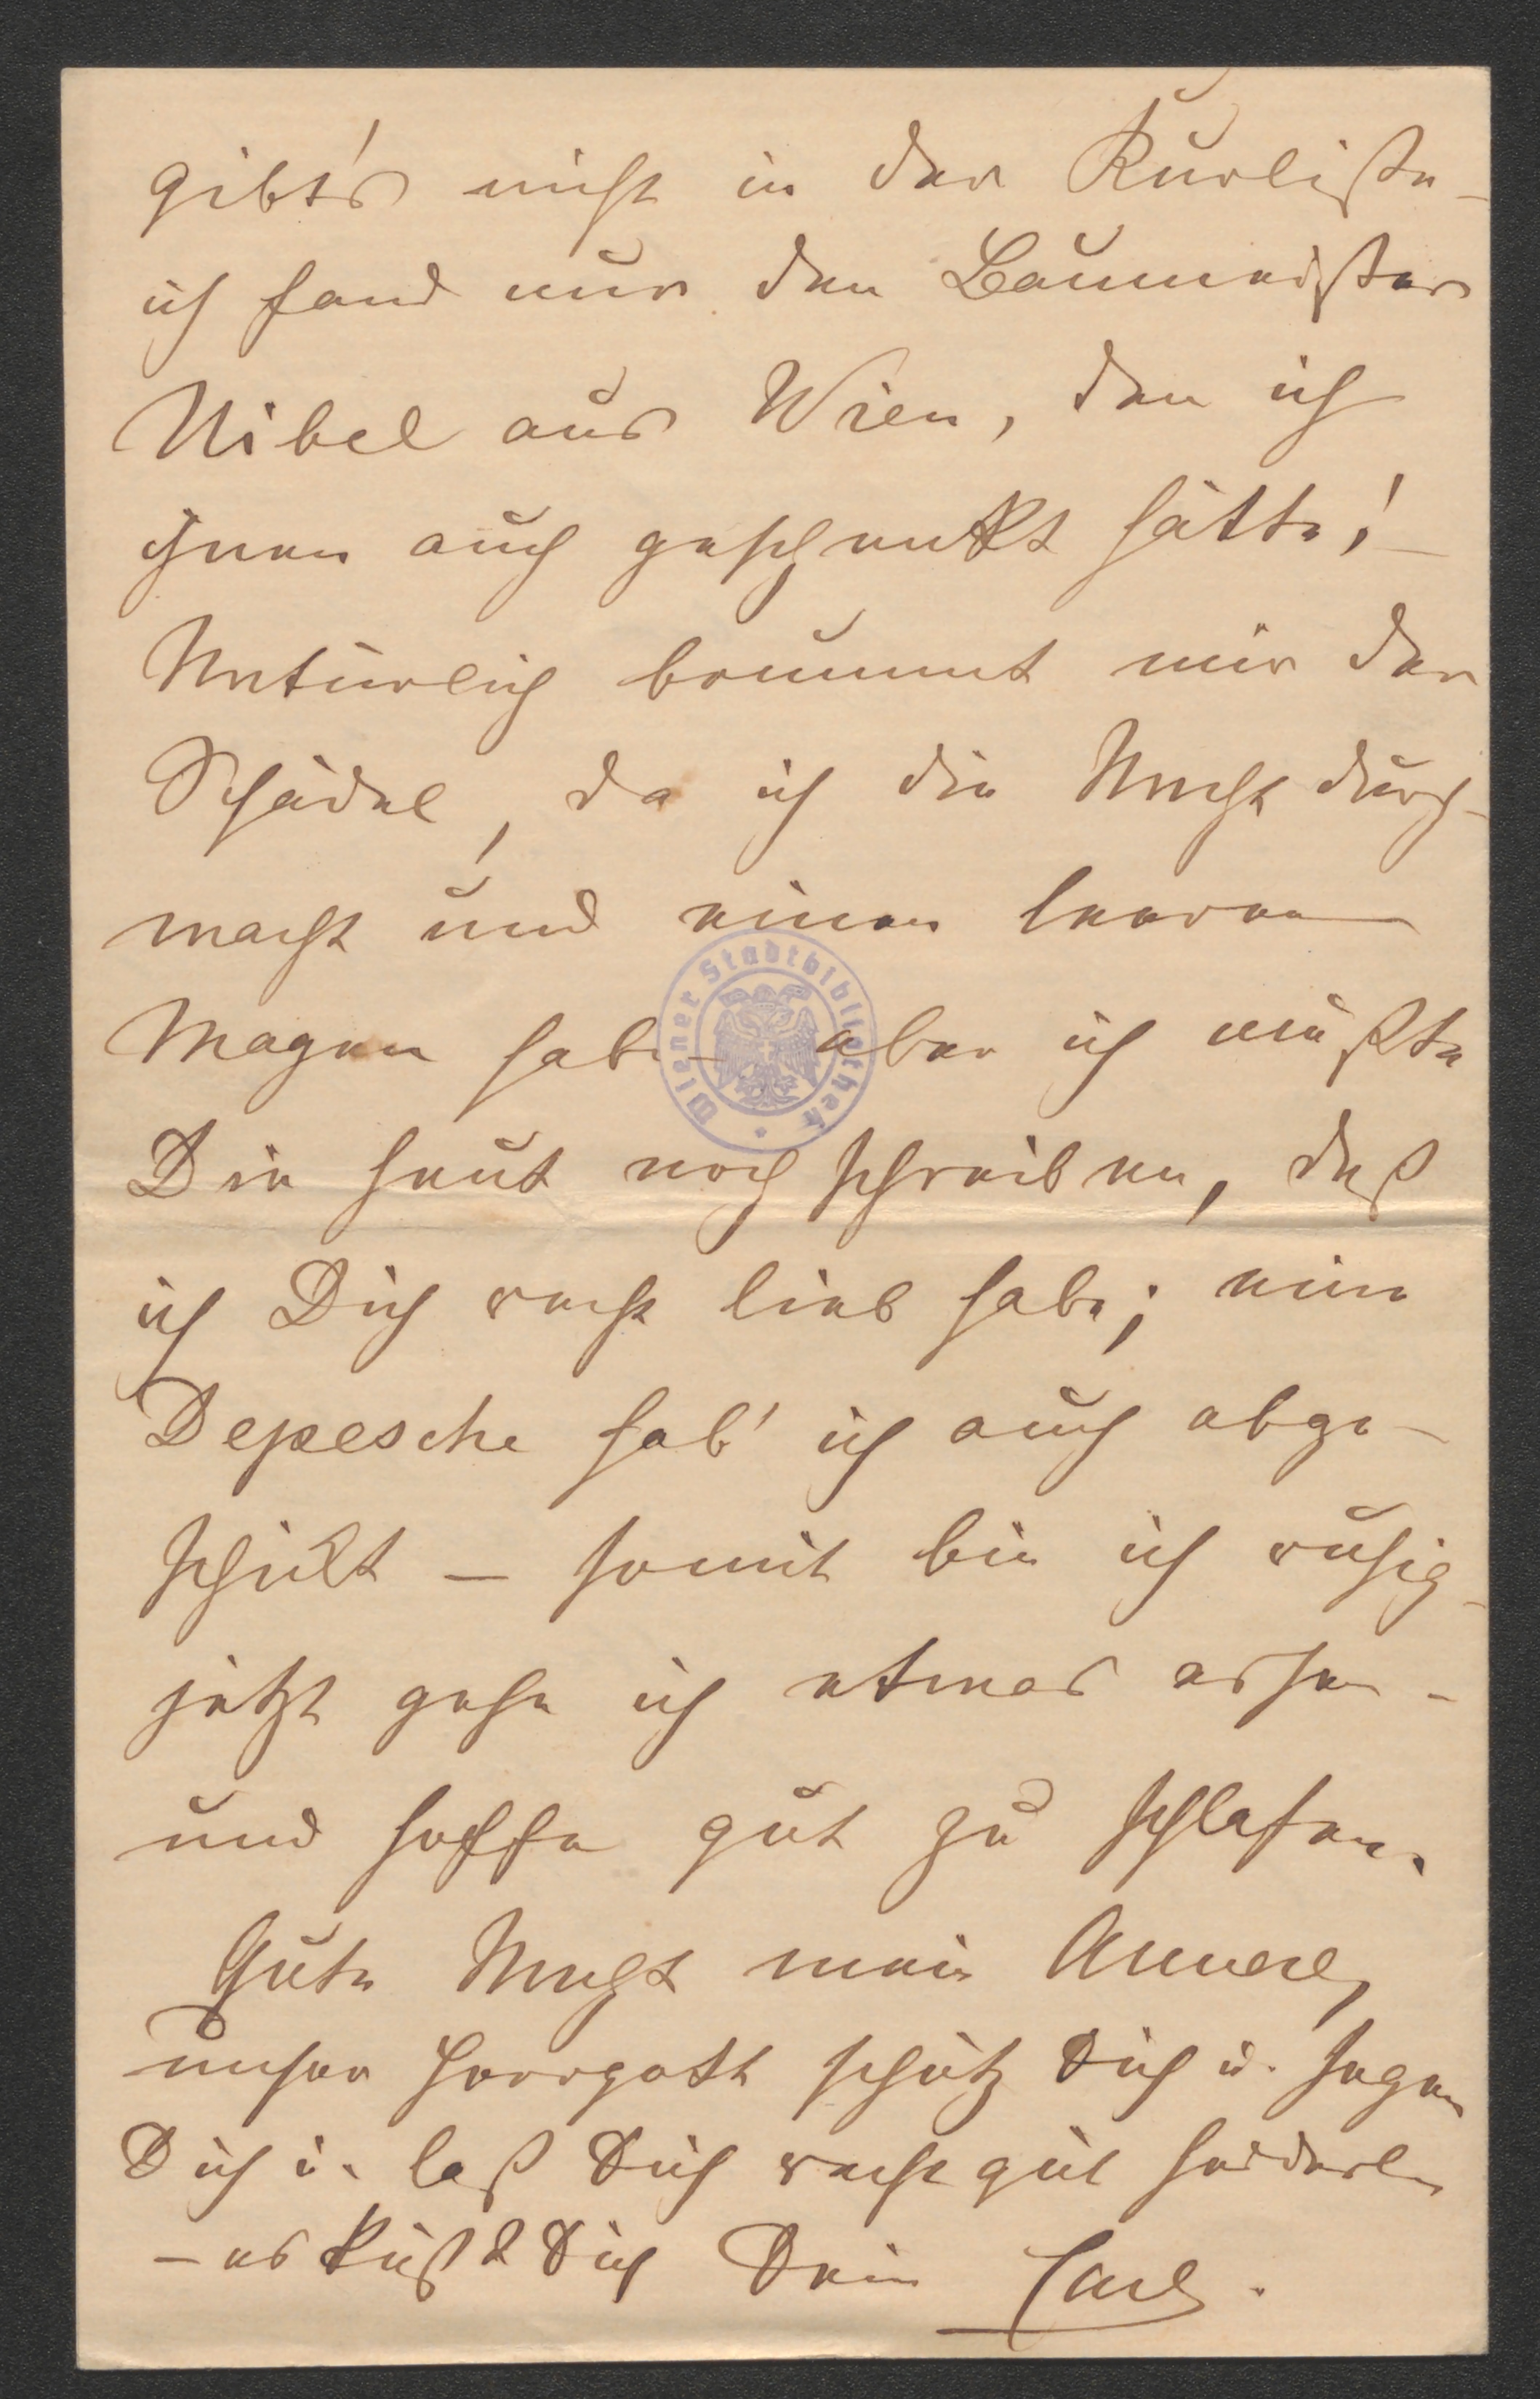 gibt's nicht in der Kurliste –
ich fand nur den Baumeister
Nibel aus Wien, den ich
ihnen auch geschenkt hätte! –
Natürlich brummt mir der
Schädel, da ich die Nacht durch-
macht und einen leeren
Magen habe – aber ich mußte
Dir heut noch schreiben, daß
ich Dich recht lieb habe; eine
Depesche hab' ich auch abge-
schickt – somit bin ich ruhig –
jetzt gehe ich etwas essen –
und hoffe gut zu schlafen.
Gute Nacht mein Annerl,
unser Herrgott schütz Dich u. segne
Dich u. laß Dich recht gut
– es küßt Dich Dein Carl.
Wiener Stadtbibliothek